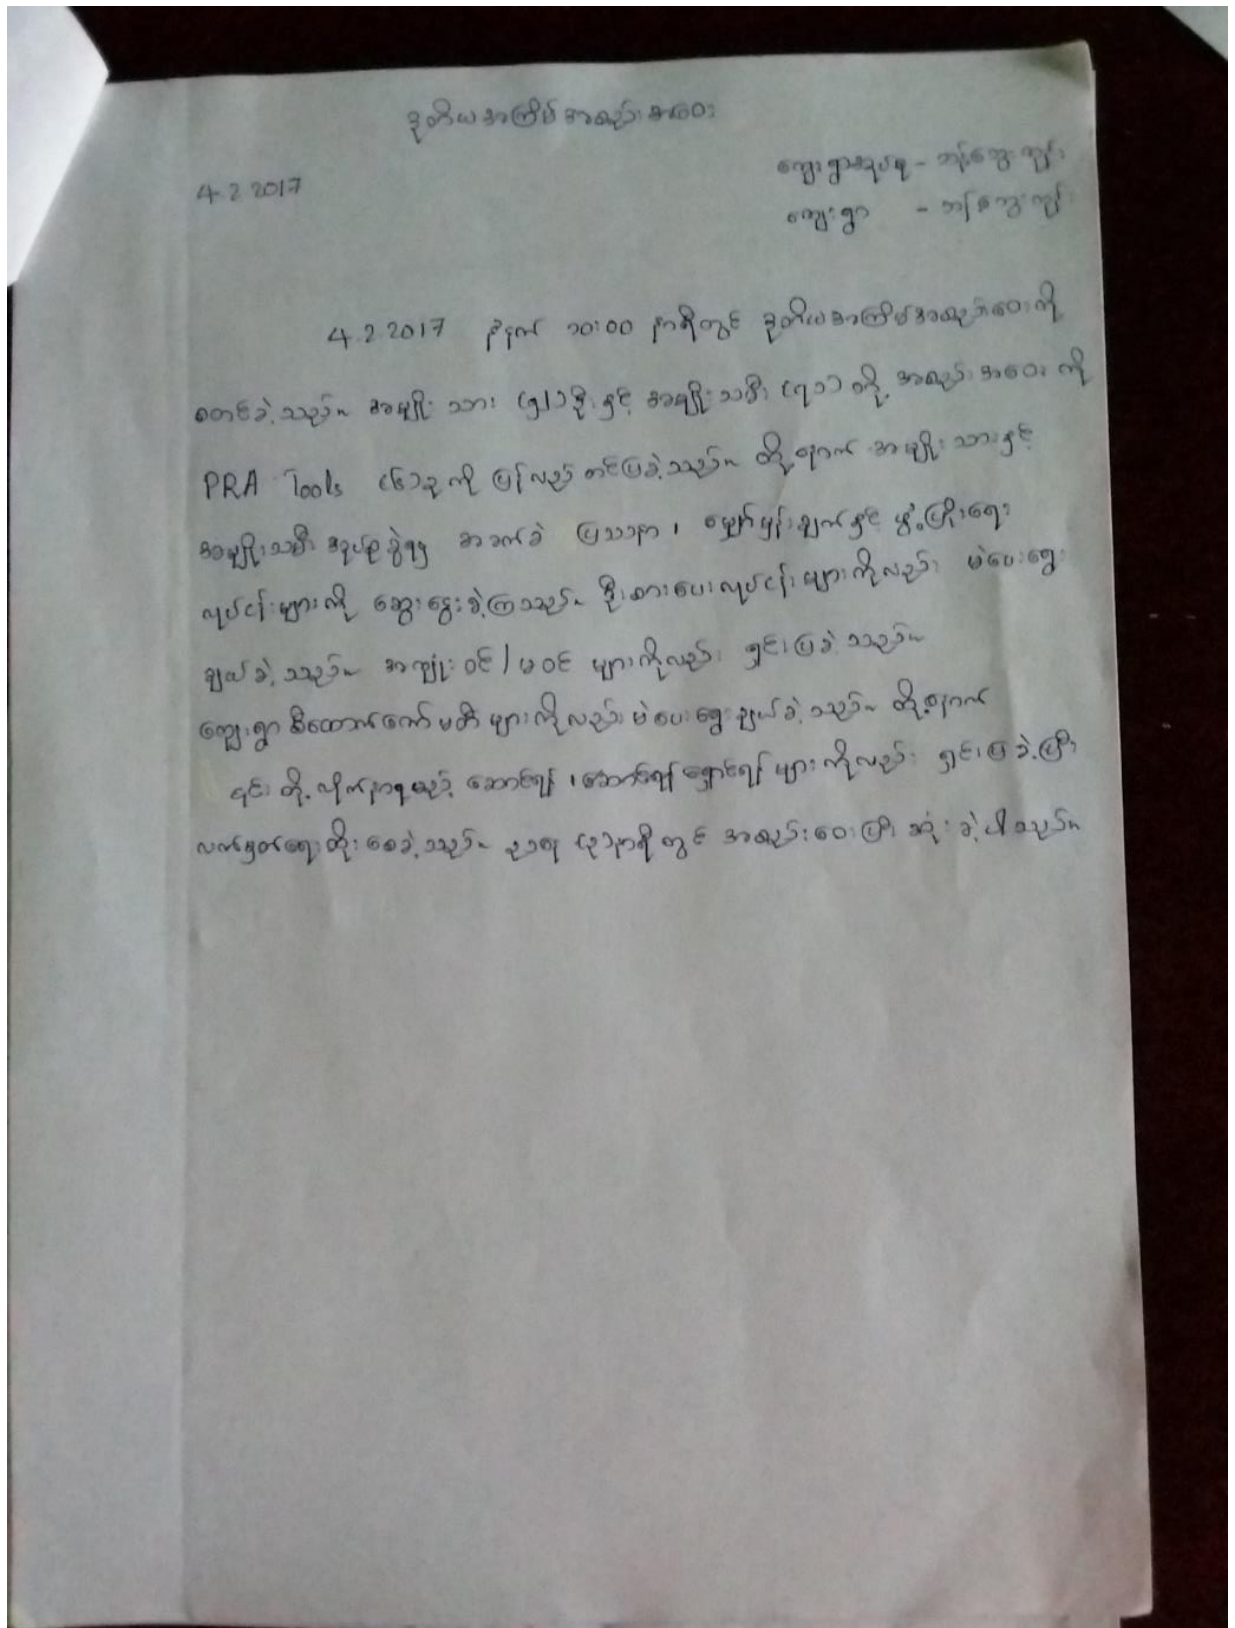 ဒုတိယအကြိမ်အစည်းအဝေး
ကျေးရွာအုပ်စု - ဘန့်ဘွေးကျွန်း
4.2.2017
ကျေးရွာ - ဘန့်ဘွေးကျွန်း
4.2.2017 နံနက် ၁၀:၀၀ နာရီတွင် ဒုတိယအကြိမ်အစည်းအဝေးကို
စတင်ခဲ့သည်။ အမျိုးသား (၅၂)ဦးနှင့် အမျိုးသမီး (၇၁) တို့ အစည်းအဝေးကို
PRA Tools (၆)ခုကို ပြန်လည်တင်ပြခဲ့သည်။ ထို့နောက် အမျိုးသားနှင့်
အမျိုးသမီး အုပ်စုခွဲ၍ အခက်ခဲ ပြဿနာ၊ မျှော်မှန်းချက်နှင့် ဖွံ့ဖြိုးရေး
လုပ်ငန်းများကို ဆွေးနွေးခဲ့ကြသည်။ ဦးစားပေးလုပ်ငန်းများကိုလည်း မဲပေးရွေး
ချယ်ခဲ့သည်။ အကျုံးဝင်/မဝင် များကိုလည်း ရှင်းပြခဲ့သည်။
ကျေးရွာစီထောက်ကော်မတီများကိုလည်း မဲပေးရွေးချယ်ခဲ့သည်။ ထို့နောက်
၎င်းတို့ လိုက်နာရမည့် ဆောင်ရန်၊ ဆောင်ရန်ရှောင်ရန်များကိုလည်း ရှင်းပြခဲ့ပြီး
လက်မှတ်ရေးထိုးစေခဲ့သည်။ ညနေ (၃)နာရီတွင် အစည်းဝေးပြီးဆုံးခဲ့ပါသည်။